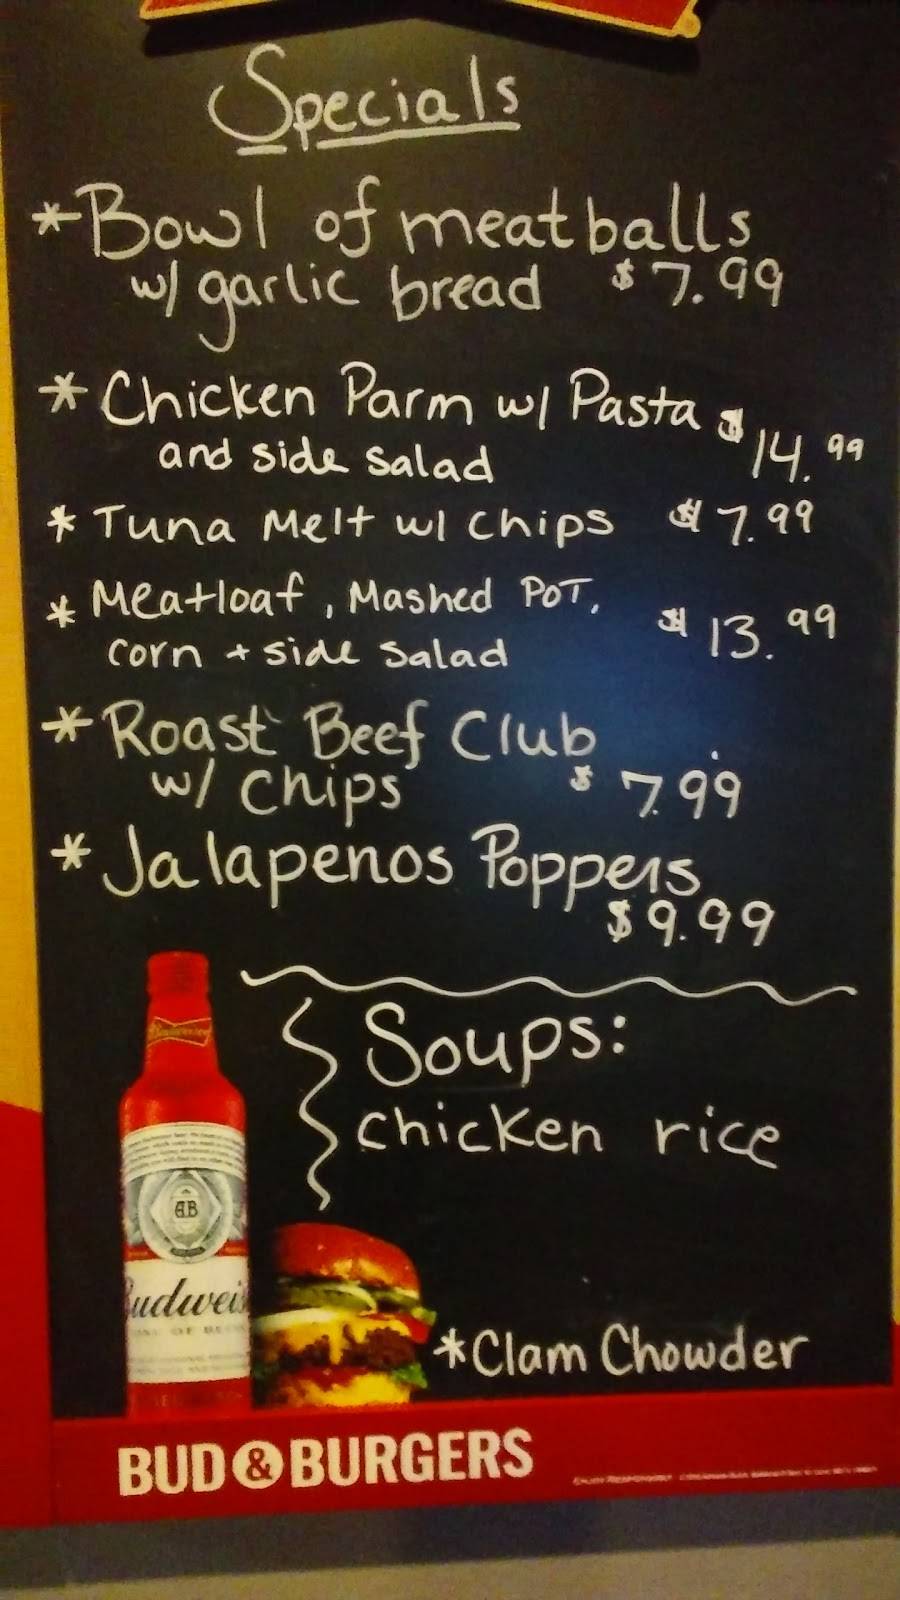 Specials
*Bowl of meatballs
w/ garlic bread $7.99
* Chicken Parm w/ Pasta $14.99
and side salad
* Tuna Melt w/ Chips $7.99
* Meatloaf, Mashed POT,
corn + side salad $13.99
* Roast Beef Club
w/ Chips $7.99
* Jalapenos Poppers
$9.99
Soups:
chicken rice
*Clam Chowder
Budweiser
AB
Budweis
BUD & BURGERS